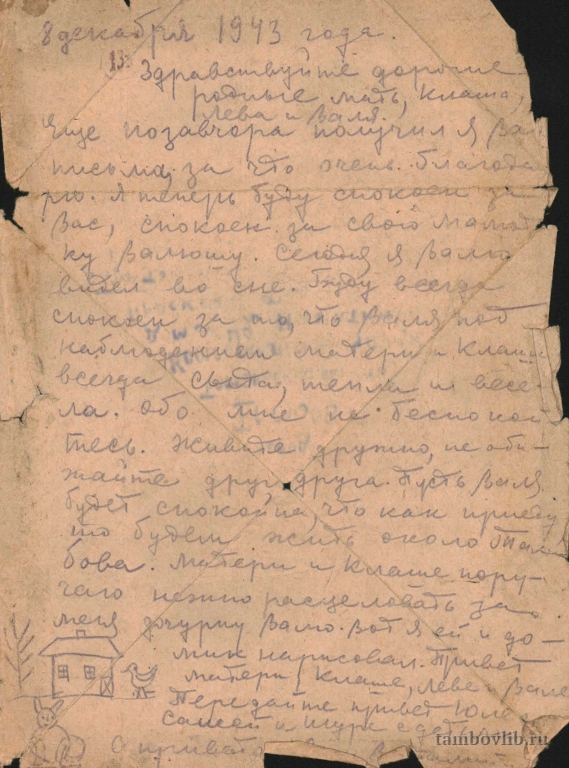 8 декабря 1943 года.
13.
Здравствуйте дорогие
родные мать, Клаша,
Лева и Валя.
Еще позавчора получил я Ва
письма, за что очень благода
рю. Я теперь буду спокоен за
Вас, спокоен за свою малют
ку Валюшу. Сегодня я Валю
видел во сне. Буду всегда
спокоен за то, что Валя под
наблюдением матери и Клаши
всегда сыта, тепла и весе-
ла. Обо мне не беспокой
тесь. Живите дружно, не оби-
жайте друг друга. Пусть Валя
будет спокойна, что как приеду
то будем жить около Там
бова. Матери и Клаше пору-
чаю нежно расцеловать за
меня дочурку Валю. Вот я ей и до-
мик нарисовал. Привет
матери, Клаше, Леве и Вале
Передайте привет Юле
Сан​ей и Шуре с дет
С приветом
tambovlib.ru